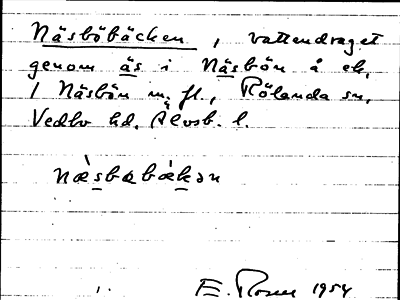 Näsböbäcken, vattendraget
genom äs i Näsbön å ek.
1 Näsbön m. fl., Rölanda sn,
Vedbo hd, Älvsb. l.
næ̀sbɷbækən
E. Rosell 1954